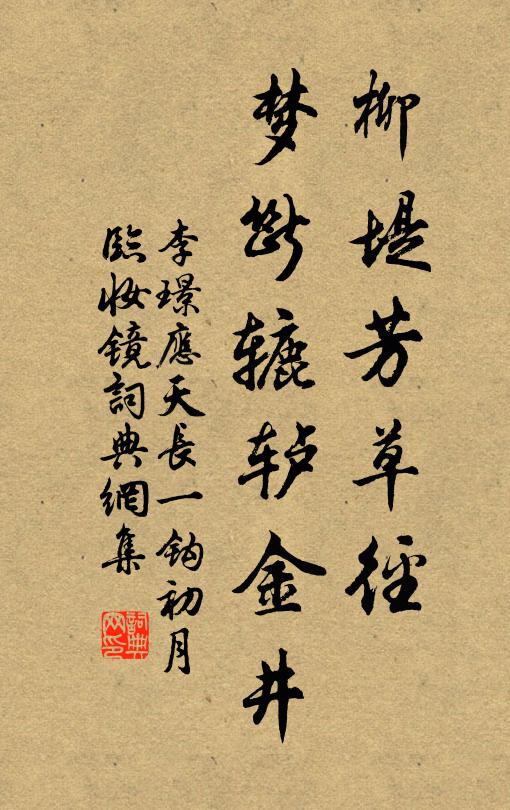 柳堤芳草径
梦断辘轳金井
李璟應天長一鈎初月
臨妆镜詞典網集
詞典网印